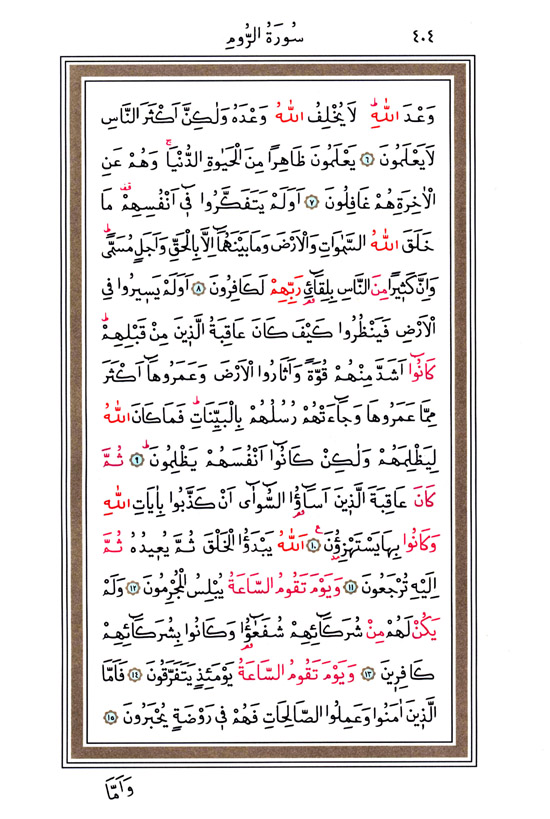 ٤٠٤ سُورَةُ الرُّومِ
وَعْدَ اللّٰهِۜ لَا يُخْلِفُ اللّٰهُ وَعْدَهُ وَلٰكِنَّ اَكْثَرَ النَّاسِ
لَا يَعْلَمُونَ ﴿٦﴾ يَعْلَمُونَ ظَاهِراً مِنَ الْحَيٰوةِ الدُّنْيَاۚ وَهُمْ عَنِ
الْاٰخِرَةِ هُمْ غَافِلُونَ ﴿٧﴾ اَوَلَمْ يَتَفَكَّرُوا فٓي اَنْفُسِهِمْ۠ مَا
خَلَقَ اللّٰهُ السَّمٰوَاتِ وَالْاَرْضَ وَمَا بَيْنَهُمَٓا اِلَّا بِالْحَقِّ وَاَجَلٍ مُسَمًّىۜ
وَاِنَّ كَث۪يراً مِنَ النَّاسِ بِلِقَٓائِ۬ رَبِّهِمْ لَكَافِرُونَ ﴿٨﴾ اَوَلَمْ يَس۪يرُوا فِي
الْاَرْضِ فَيَنْظُرُوا كَيْفَ كَانَ عَاقِبَةُ الَّذ۪ينَ مِنْ قَبْلِهِمْۜ
كَانُٓوا اَشَدَّ مِنْهُمْ قُوَّةً وَاَثَارُوا الْاَرْضَ وَعَمَرُوهَٓا اَكْثَرَ
مِمَّا عَمَرُوهَا وَجَٓاءَتْهُمْ رُسُلُهُمْ بِالْبَيِّنَاتِۜ فَمَا كَانَ اللّٰهُ
لِيَظْلِمَهُمْ وَلٰكِنْ كَانُٓوا اَنْفُسَهُمْ يَظْلِمُونَۜ ﴿٩﴾ ثُمَّ
كَانَ عَاقِبَةَ الَّذ۪ينَ اَسَٓاؤُ۫ا السُّٓوآٰى اَنْ كَذَّبُوا بِاٰيَاتِ اللّٰهِ
وَكَانُوا بِهَا يَسْتَهْزِؤُ۫نَ۟ ﴿١٠﴾ اَللّٰهُ يَبْدَؤُا الْخَلْقَ ثُمَّ يُع۪يدُهُ ثُمَّ
اِلَيْهِ تُرْجَعُونَ ﴿١١﴾ وَيَوْمَ تَقُومُ السَّاعَةُ يُبْلِسُ الْمُجْرِمُونَ ﴿١٢﴾ وَلَمْ
يَكُنْ لَهُمْ مِنْ شُرَكَٓائِهِمْ شُفَعٰٓؤُ۬ا وَكَانُوا بِشُرَكَٓائِهِمْ
كَافِر۪ينَ ﴿١٣﴾ وَيَوْمَ تَقُومُ السَّاعَةُ يَوْمَئِذٍ يَتَفَرَّقُونَ ﴿١٤﴾ فَاَمَّا
الَّذ۪ينَ اٰمَنُوا وَعَمِلُوا الصَّالِحَاتِ فَهُمْ ف۪ي رَوْضَةٍ يُحْبَرُونَ ﴿١٥﴾
وَاَمَّا